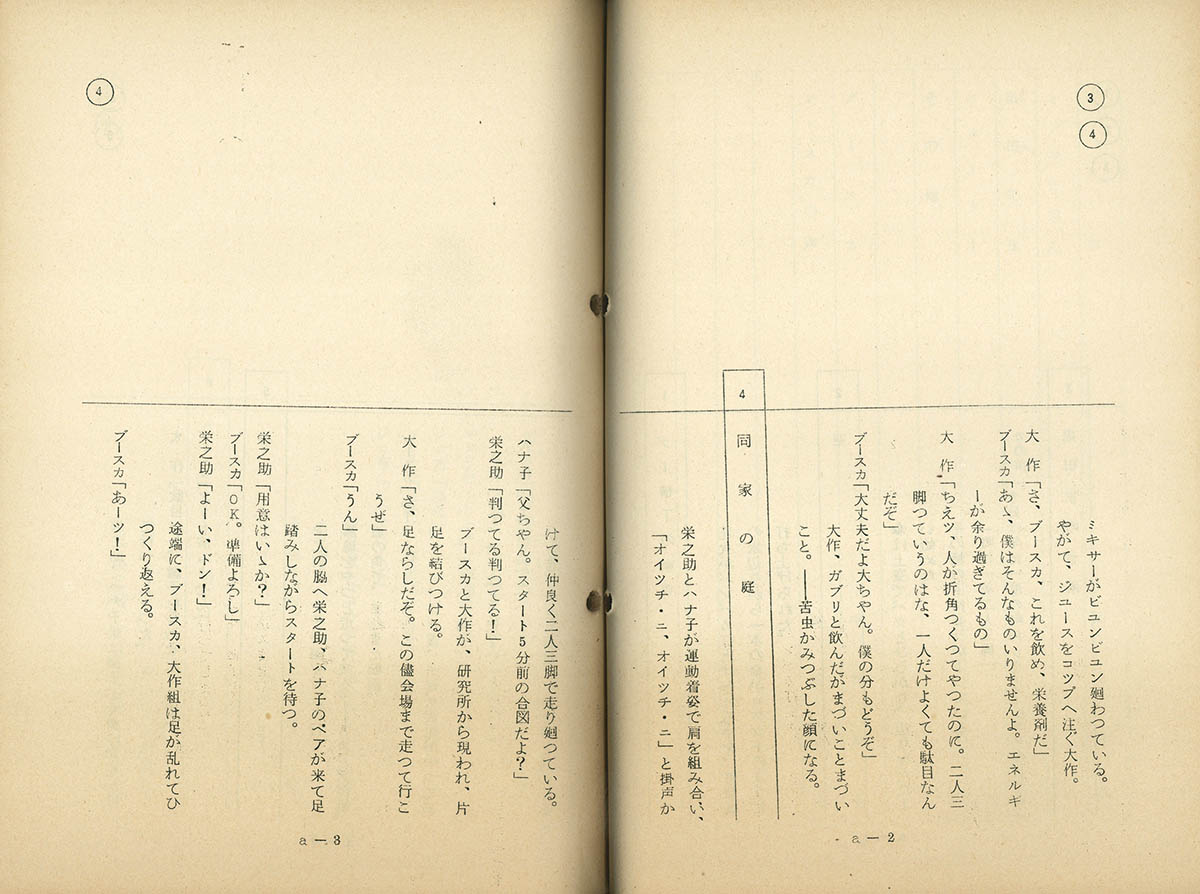 ③
④
ミキサーがビユンビユン廻わつている。
やがて、ジユースをコツプへ注ぐ大作。
大　作「さ、ブースカ、これを飲め、栄養剤だ」
ブースカ「あゝ、僕はそんなものいりませんよ。エネルギ
ーが余り過ぎてるもの」
大　作「ちえツ、人が折角つくつてやつたのに。二人三
脚つていうのはな、一人だけよくても駄目なん
だぞ」
ブースカ「大丈夫だよ大ちやん。僕の分もどうぞ」
大作、ガブリと飲んだがまづいことまづい
こと。――苦虫かみつぶした顔になる。
4　同家の庭
栄之助とハナ子が運動着姿で肩を組み合い、
「オイツチ・ニ、オイツチ・ニ」と掛声か
a－2
④
けて、仲良く二人三脚で走り廻つている。
ハナ子「父ちやん。スタート5分前の合図だよ？」
栄之助「判つてる判つてる！」
ブースカと大作が、研究所から現われ、片
足を結びつける。
大　作「さ、足ならしだぞ。この儘会場まで走つて行こ
うぜ」
ブースカ「うん」
二人の脇へ栄之助、ハナ子のペアが来て足
踏みしながらスタートを待つ。
栄之助「用意はいゝか？」
ブースカ「OK。準備よろし」
栄之助「よーい、ドン！」
途端に、ブースカ、大作組は足が乱れてひ
つくり返える。
ブースカ「あーツ！」
a－3